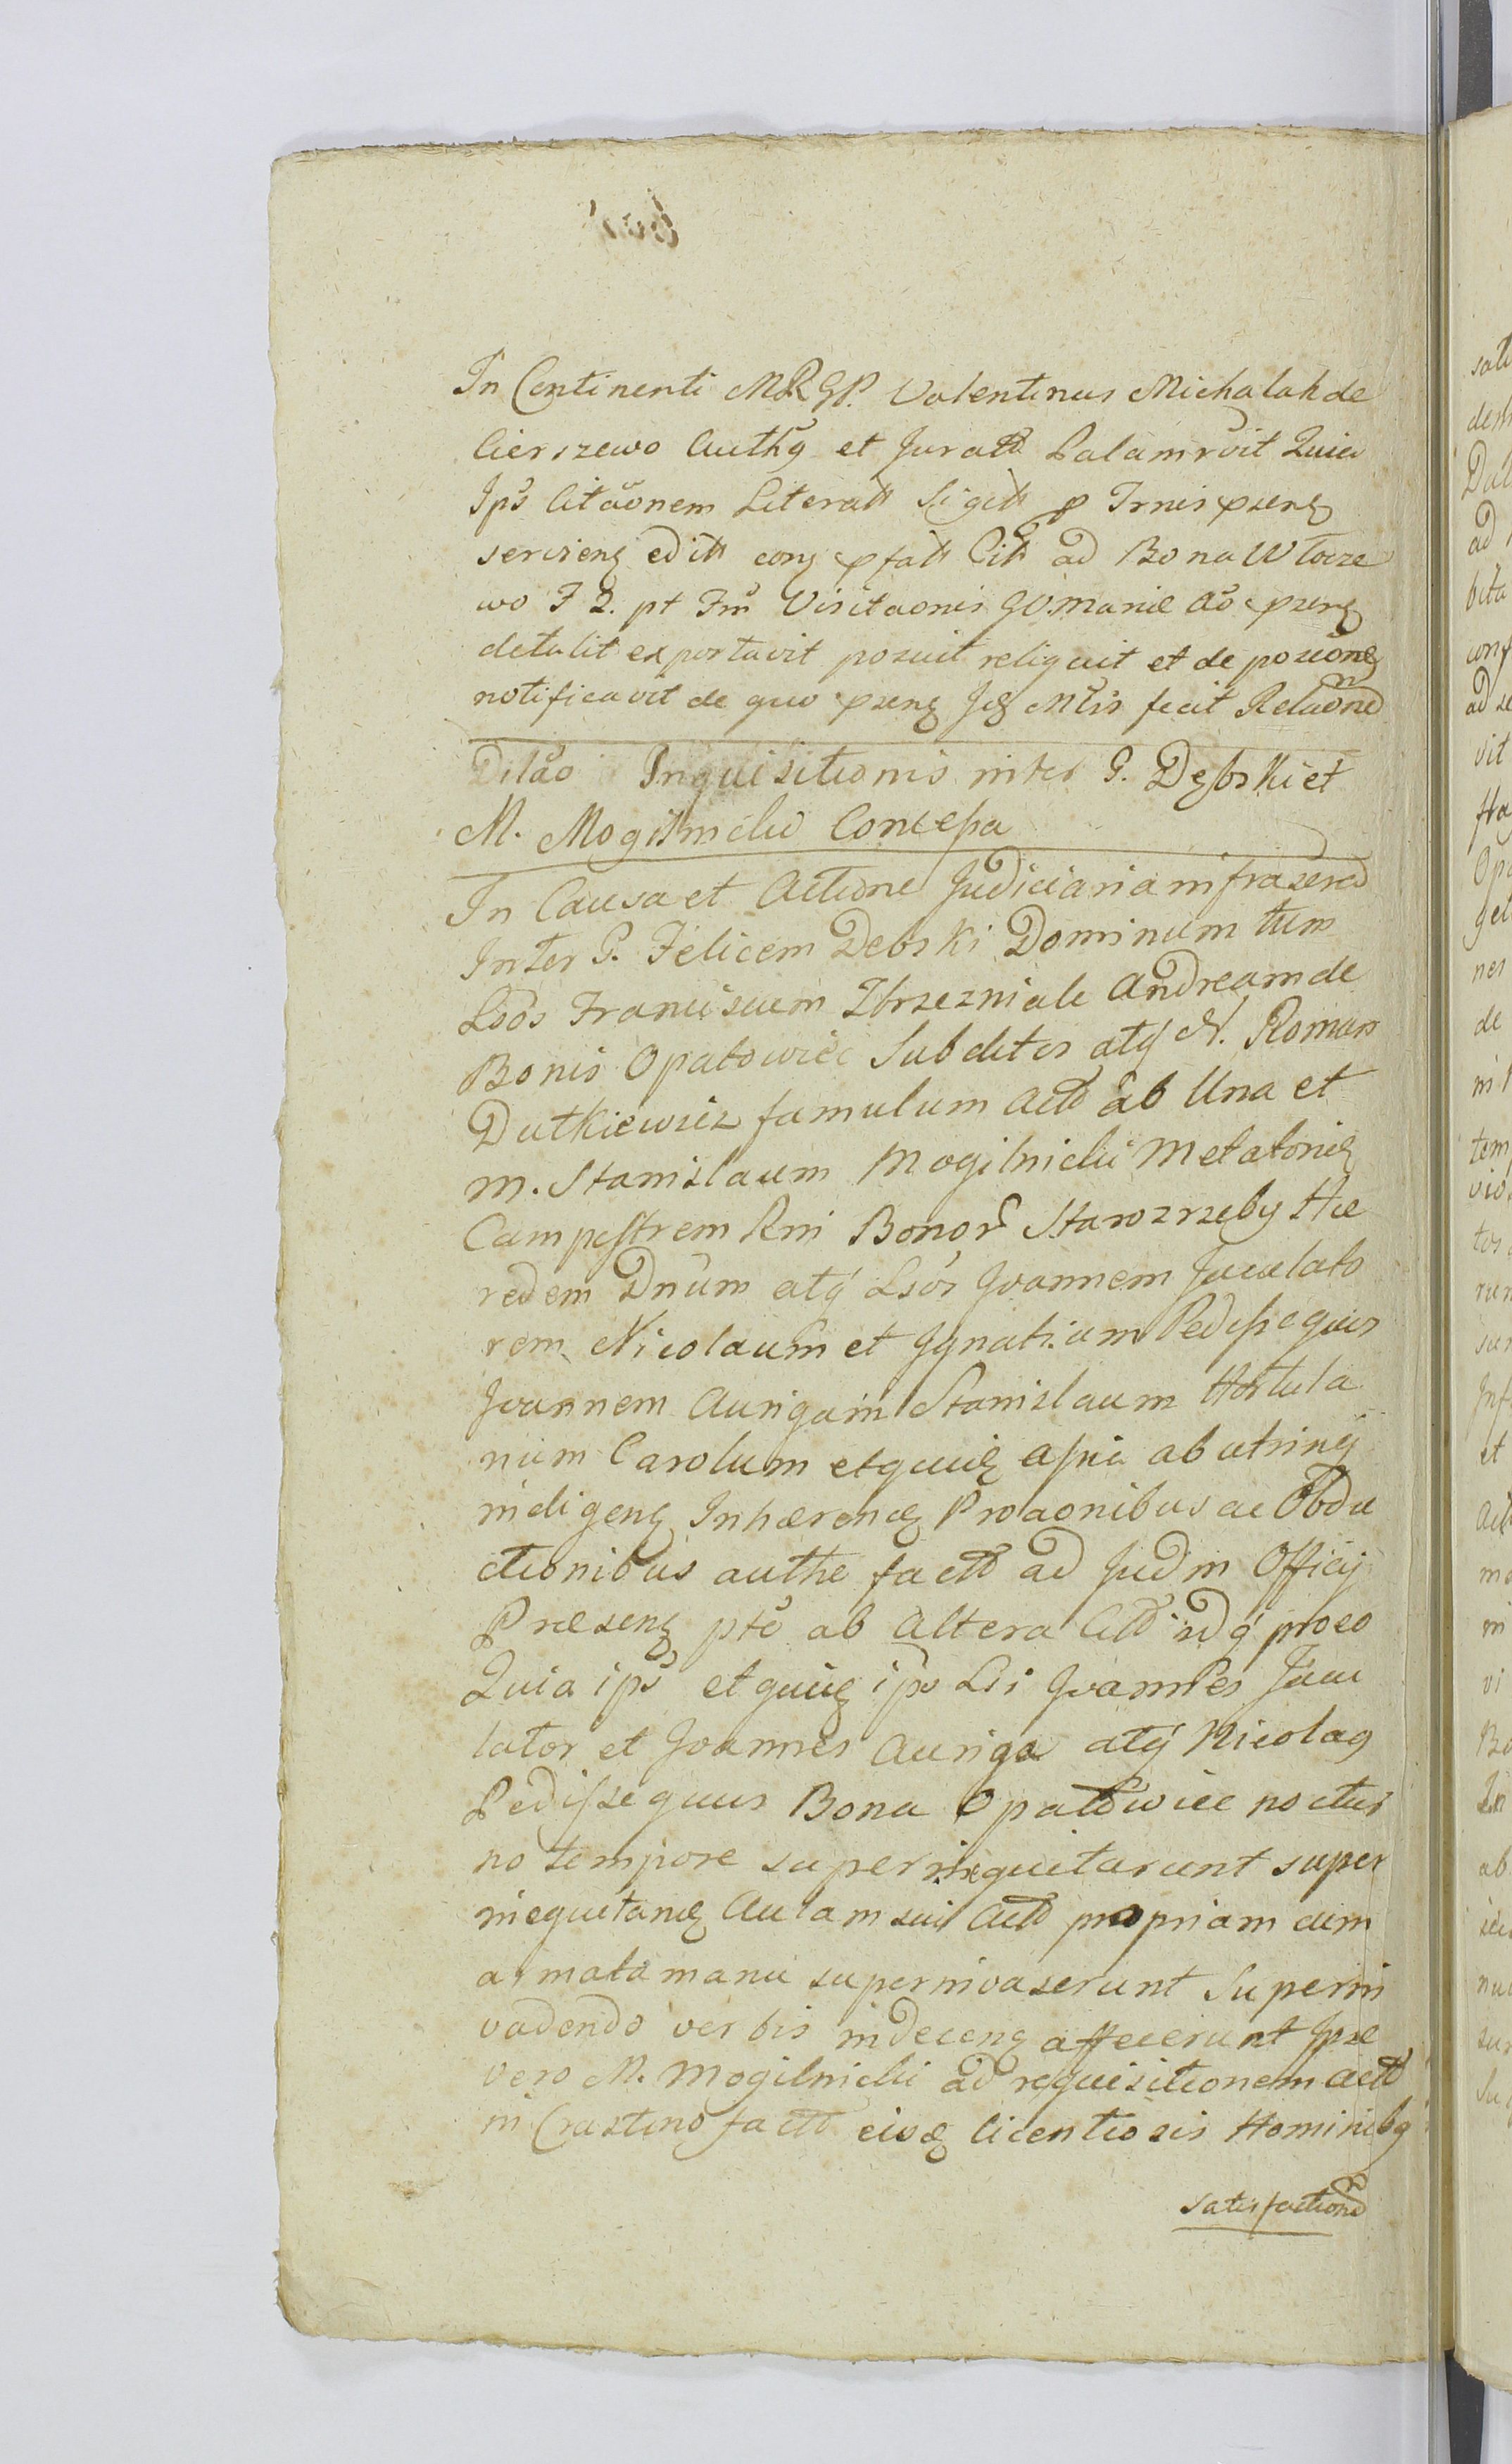 In Continenti MRGP. Valentinus Michalak de
Cierszewo Authg et Juratt Palam rvit Quia
Ips Citaonem Literatt Sigitt p Trnis pseng
servieng editt
ad Bona Wlocze
wo F 2. pt Fm Visitaonis GVMariæ Ao pseng
detulit exportavit posuit reliquit et de poscione
notificavit de quo pseng Jg Mtis fecit Relaonem
Dilao Inquisitionis inter G. Dębski et
M. Mogilnicki Concessa
In Causa et Actione Judiciaria infrascrip
Inter G. Felicem Debski Dominum tum
Lbos Franciscum Zbrzezniak Andream de
Bonis Opatowiec Subditos atq N. Roman
Dutkiewicz famulum Actt ab Una et
M. Stanislaum Mogilnicki Metatorie
Campestrem Rni Bonor Starozrzeby Hæ
redem Dnum atq Lbos Joannem Jaculato
rem Nicolaum et Ignatium Pedissequos
Joannem Aurigam Stanislaum Hortula
num Carolum etquie assia ab utrinq
indigeng Inhærenđ Prolaonibus ac Obdu
ctionibus authe factt ad Judm Officij
Præseng pte ab Altera Citt idq pro eo
Quia ips etquie ips Lis Joannes Jacu
lator et Joannes Auriga atq Nicolag
Pedissequus Bona Opatowiec noctur
no tempore superinequitarunt super
inequitanđ Aulam sui Actt propriam cum
armata manu superinvaserunt Superin
vadendo verbis indeceng affecerunt Ipse
vero M. Mogilnicki ad requisitionem Actt
in Crastino factt eisđ licentiosis Hominibg
satisfactionem